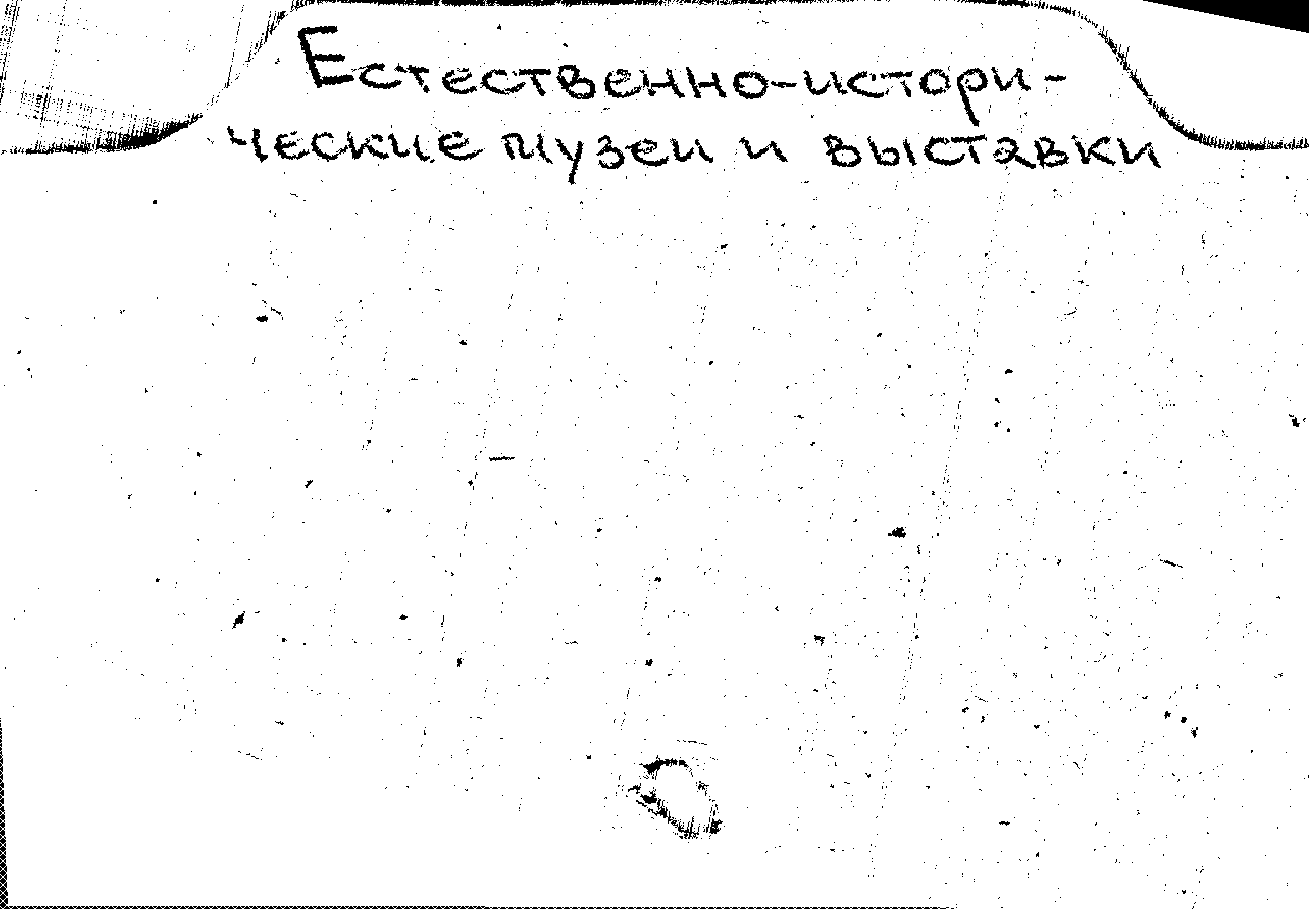 Естественно-истори-
ческие музеи и выставки